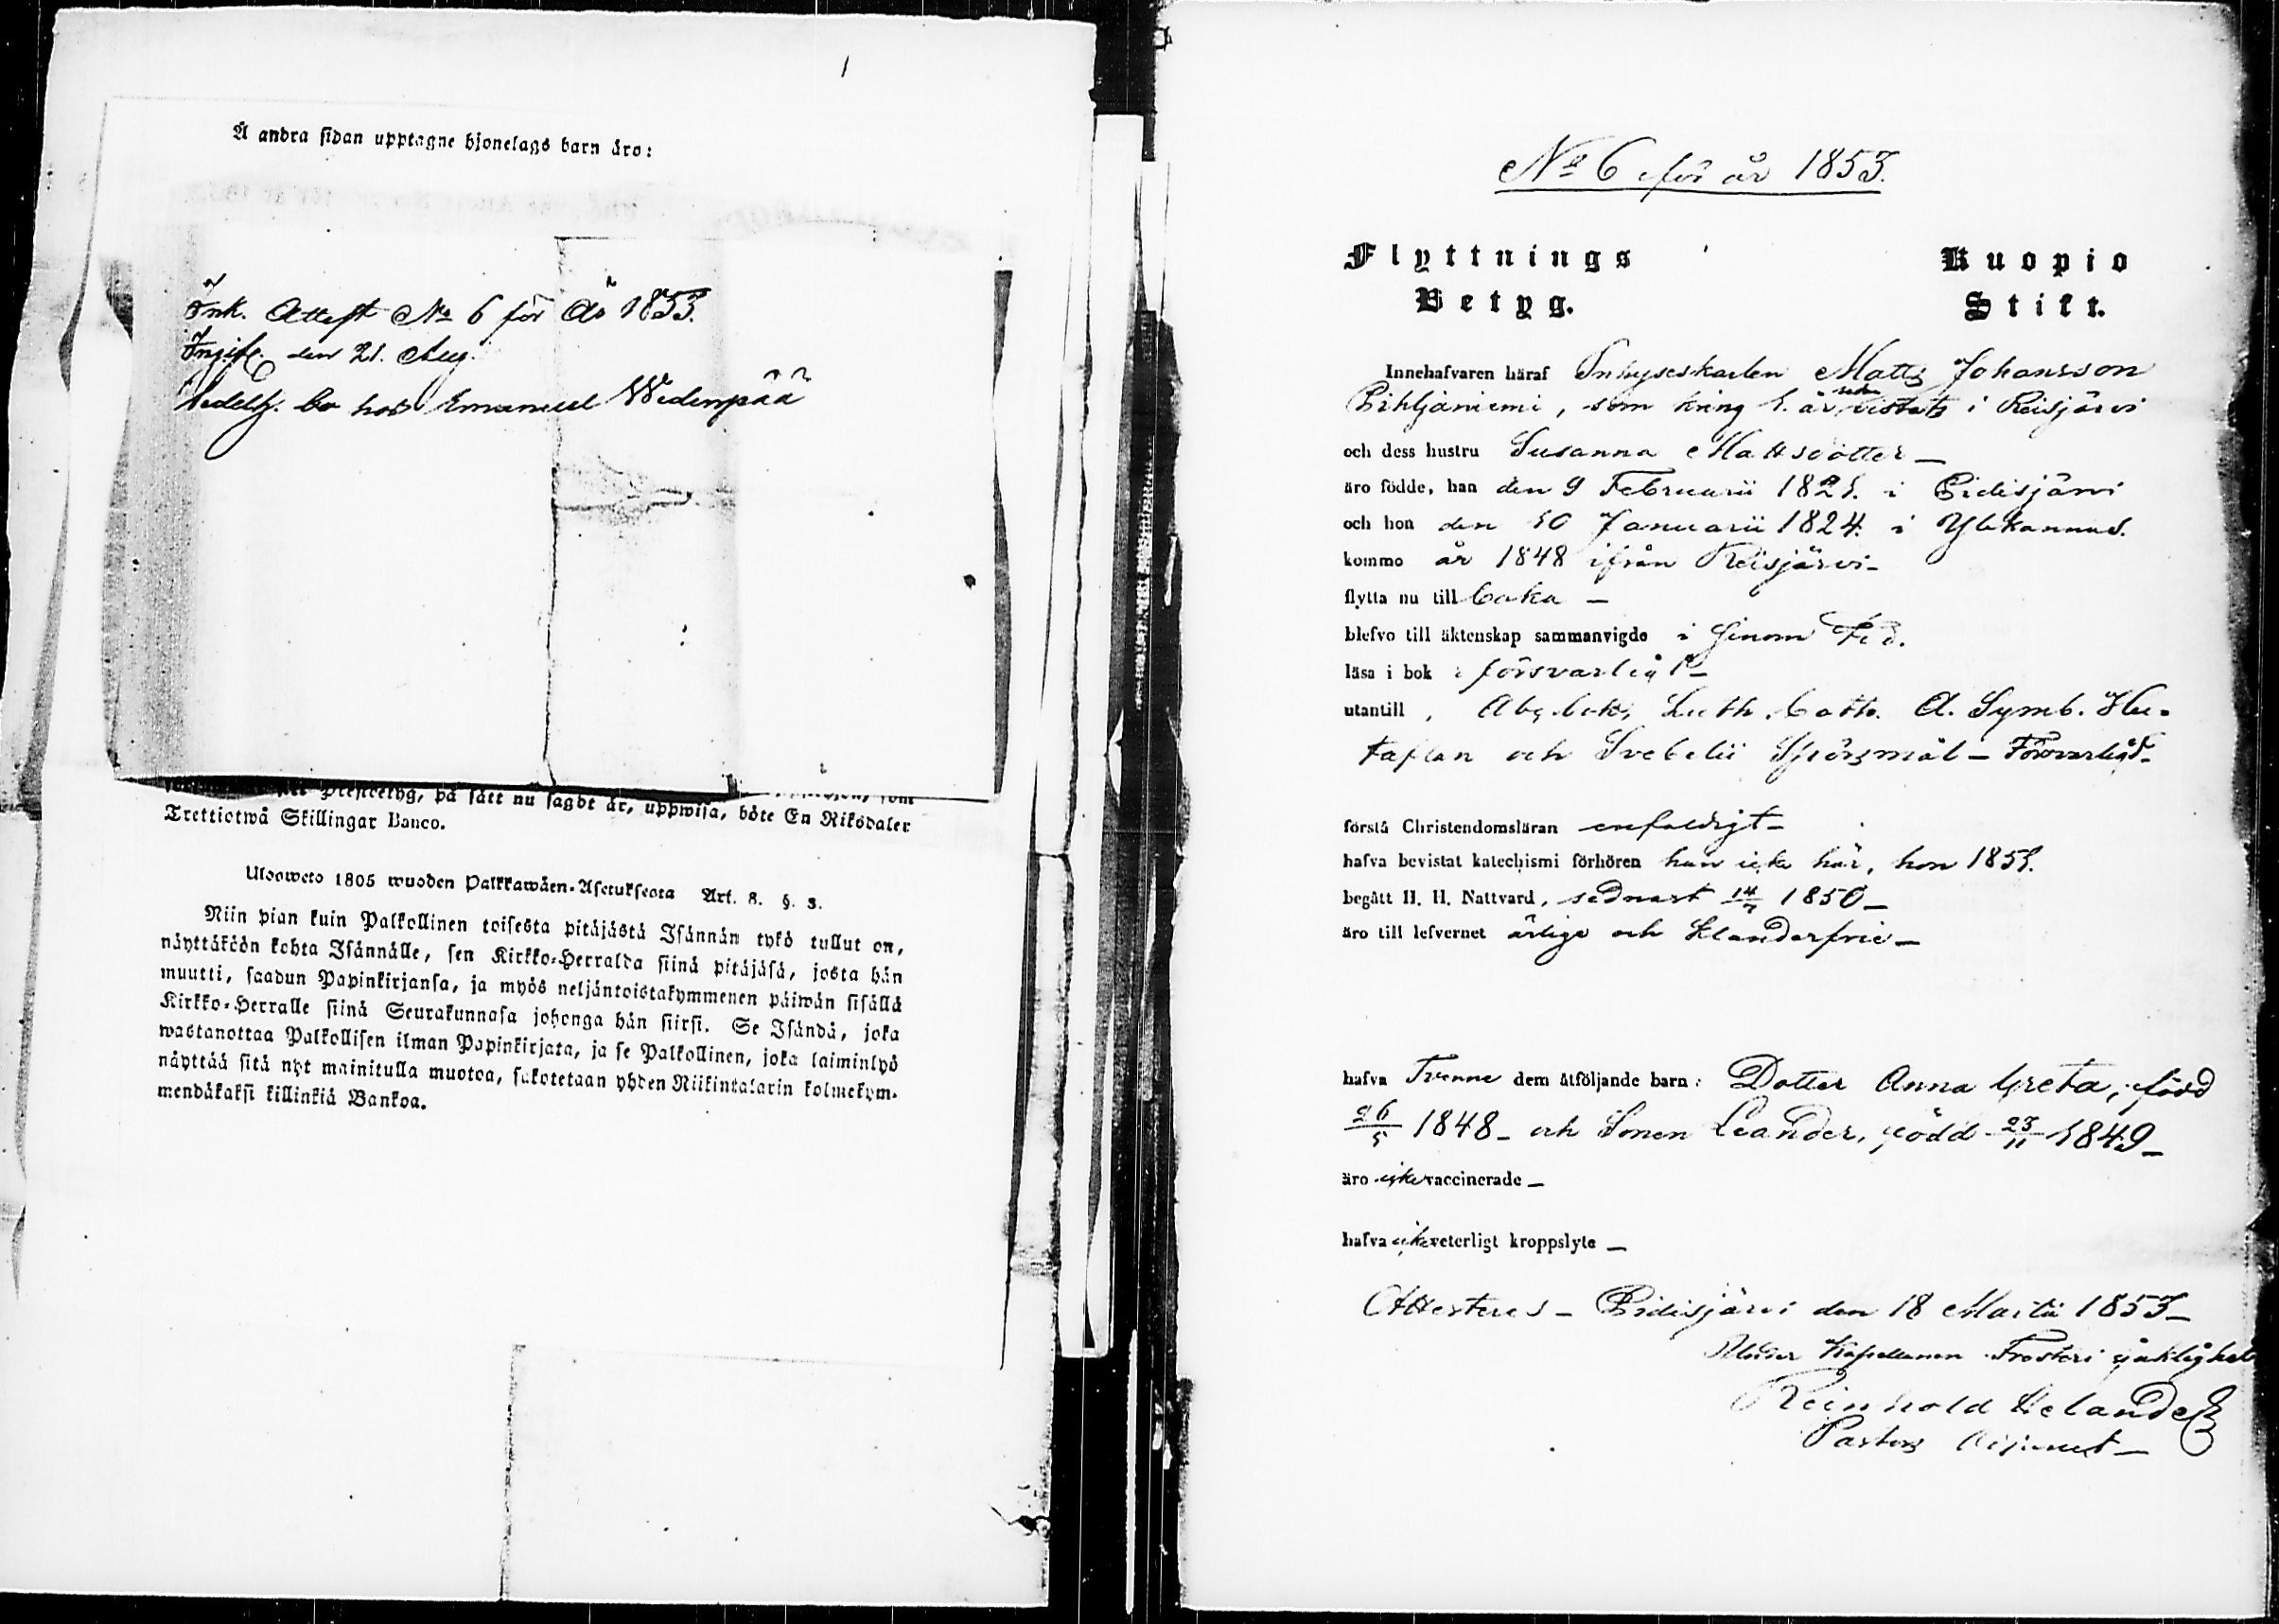 1
Å andra sidan upptagne hjonelags barn äro:
Ink. Attest No 6 för År 1853.
Ingifv. den 21. Aug.
bo hos Emanuel Wedenpää
Prestbetyg, på sätt nu sagdt är, uppwisa, böte En Riksdaler
Trettiotwå Skillingar Banco.
Ulosweto 1805 wuoden Palkkawäen-Asetuksesta Art. 8. §. 3.
Niin pian kuin Palkollinen toisesta pitäjästä Isännän tykö tullut on,
näyttäköön kohta Isännälle, sen Kirkko-Herralda siinä pitäjäsä, josta hän
muutti, saadun Papinkirjansa, ja myös neljäntoistakymmenen päiwän sisällä
Kirkko-Herralle siinä Seurakunnasa johonga hän siirsi. Se Isändä, joka
wastanottaa Palkollisen ilman Papinkirjata, ja se Palkollinen, joka laiminlyö
näyttää sitä nyt mainitulla muotoa, sakotetaan yhden Riikintalarin kolmekym-
mendäkaksi killinkiä Bankoa.
No 6 för år 1853.
Flyttnings Kuopio
Betyg. Stift.
Innehafvaren häraf Inhyseskarlen Matts Johansson
Pihljaniemi, som kring 1. år vistats i Reisjärvi
och dess hustru Susanna Mattsdotter —
äro födde, han den 9 Februarii 1821. i Pidisjärvi
och hon den 10 Januarii 1824. i Ylikannus.
kommo år 1848 ifrån Reisjärvi —
flytta nu till baka —
blefvo till äktenskap sammanvigde i
läsa i bok försvarligt —
utantill, Abc boken, Luth. Cath. A. Symb. Hu-
taflan och Svebelii Spörsmål — Försvarligt —
förstå Christendomsläran enfaldigt —
hafva bevistat katechismi förhören han icke här, hon 1851.
begått H. H. Nattvard, sednast 14/7 1850 —
äro till lefvernet ärlige och klanderfrie —
hafva Tvenne dem åtföljande barn: Dotter Anna Greta, född
26/5 1848 — och Sonen Leander, född 23/11 1849 —
äro icke vaccinerade —
hafva icke veterligt kroppslyte —
Attesteres — Pidisjärvi den 18 Martii 1853 —
Under Kapellanen Frosteri sjuklighet
Reinhold Helander
Pastors Adjunct —